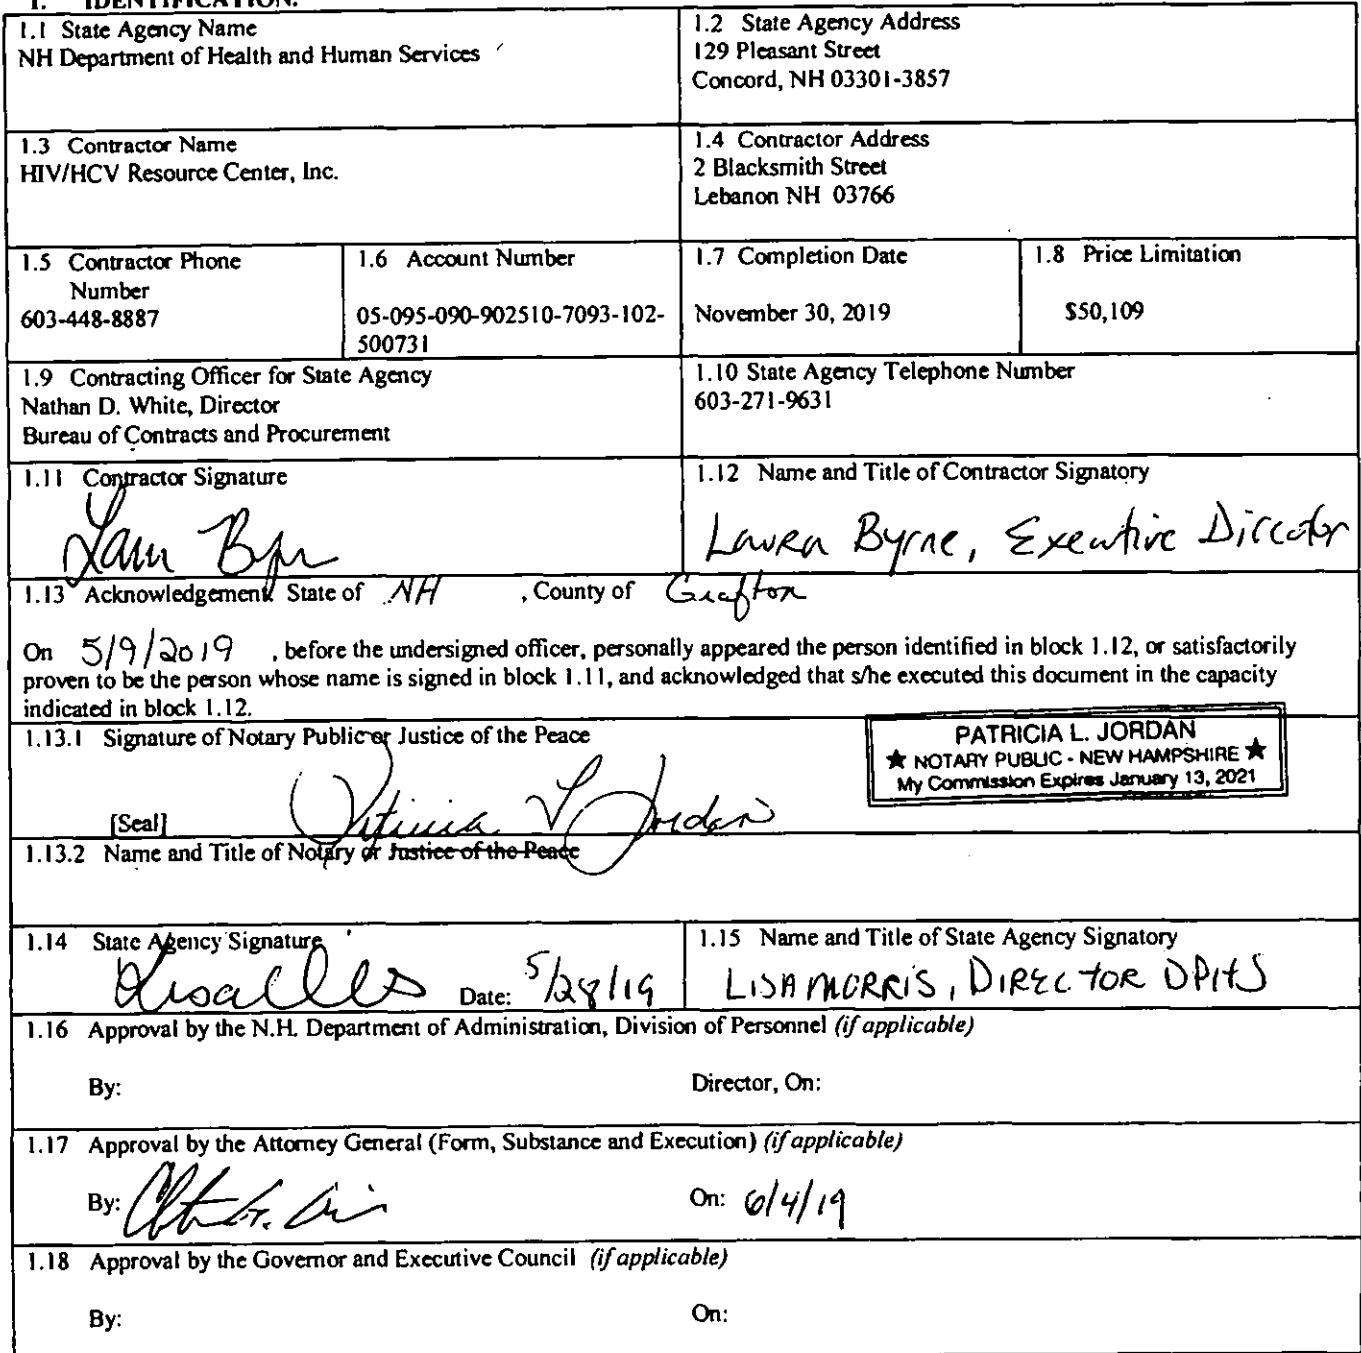 1. IDENTIFICATION.
1.1 State Agency Name
NH Department of Health and Human Services
1.2 State Agency Address
129 Pleasant Street
Concord, NH 03301-3857
1.3 Contractor Name
HIV/HCV Resource Center, Inc.
1.4 Contractor Address
2 Blacksmith Street
Lebanon NH 03766
1.5 Contractor Phone
Number
603-448-8887
1.6 Account Number
05-095-090-902510-7093-102-
500731
1.7 Completion Date
November 30, 2019
1.8 Price Limitation
$50,109
1.9 Contracting Officer for State Agency
Nathan D. White, Director
Bureau of Contracts and Procurement
1.10 State Agency Telephone Number
603-271-9631
1.11 Contractor Signature
1.12 Name and Title of Contractor Signatory
Laura Byrne, Executive Director
1.13 Acknowledgement State of NH , County of Grafton
On 5/9/2019 , before the undersigned officer, personally appeared the person identified in block 1.12, or satisfactorily
proven to be the person whose name is signed in block 1.11, and acknowledged that s/he executed this document in the capacity
indicated in block 1.12.
1.13.1 Signature of Notary Public or Justice of the Peace
PATRICIA L. JORDAN
★ NOTARY PUBLIC - NEW HAMPSHIRE ★
My Commission Expires January 13, 2021
[Seal] Patricia L Jordan
1.13.2 Name and Title of Notary or Justice of the Peace
1.14 State Agency Signature
Date: 5/28/19
1.15 Name and Title of State Agency Signatory
LISA MORRIS, DIRECTOR DPHS
1.16 Approval by the N.H. Department of Administration, Division of Personnel (if applicable)
By: Director, On:
1.17 Approval by the Attorney General (Form, Substance and Execution) (if applicable)
By: On: 6/4/19
1.18 Approval by the Governor and Executive Council (if applicable)
By: On: